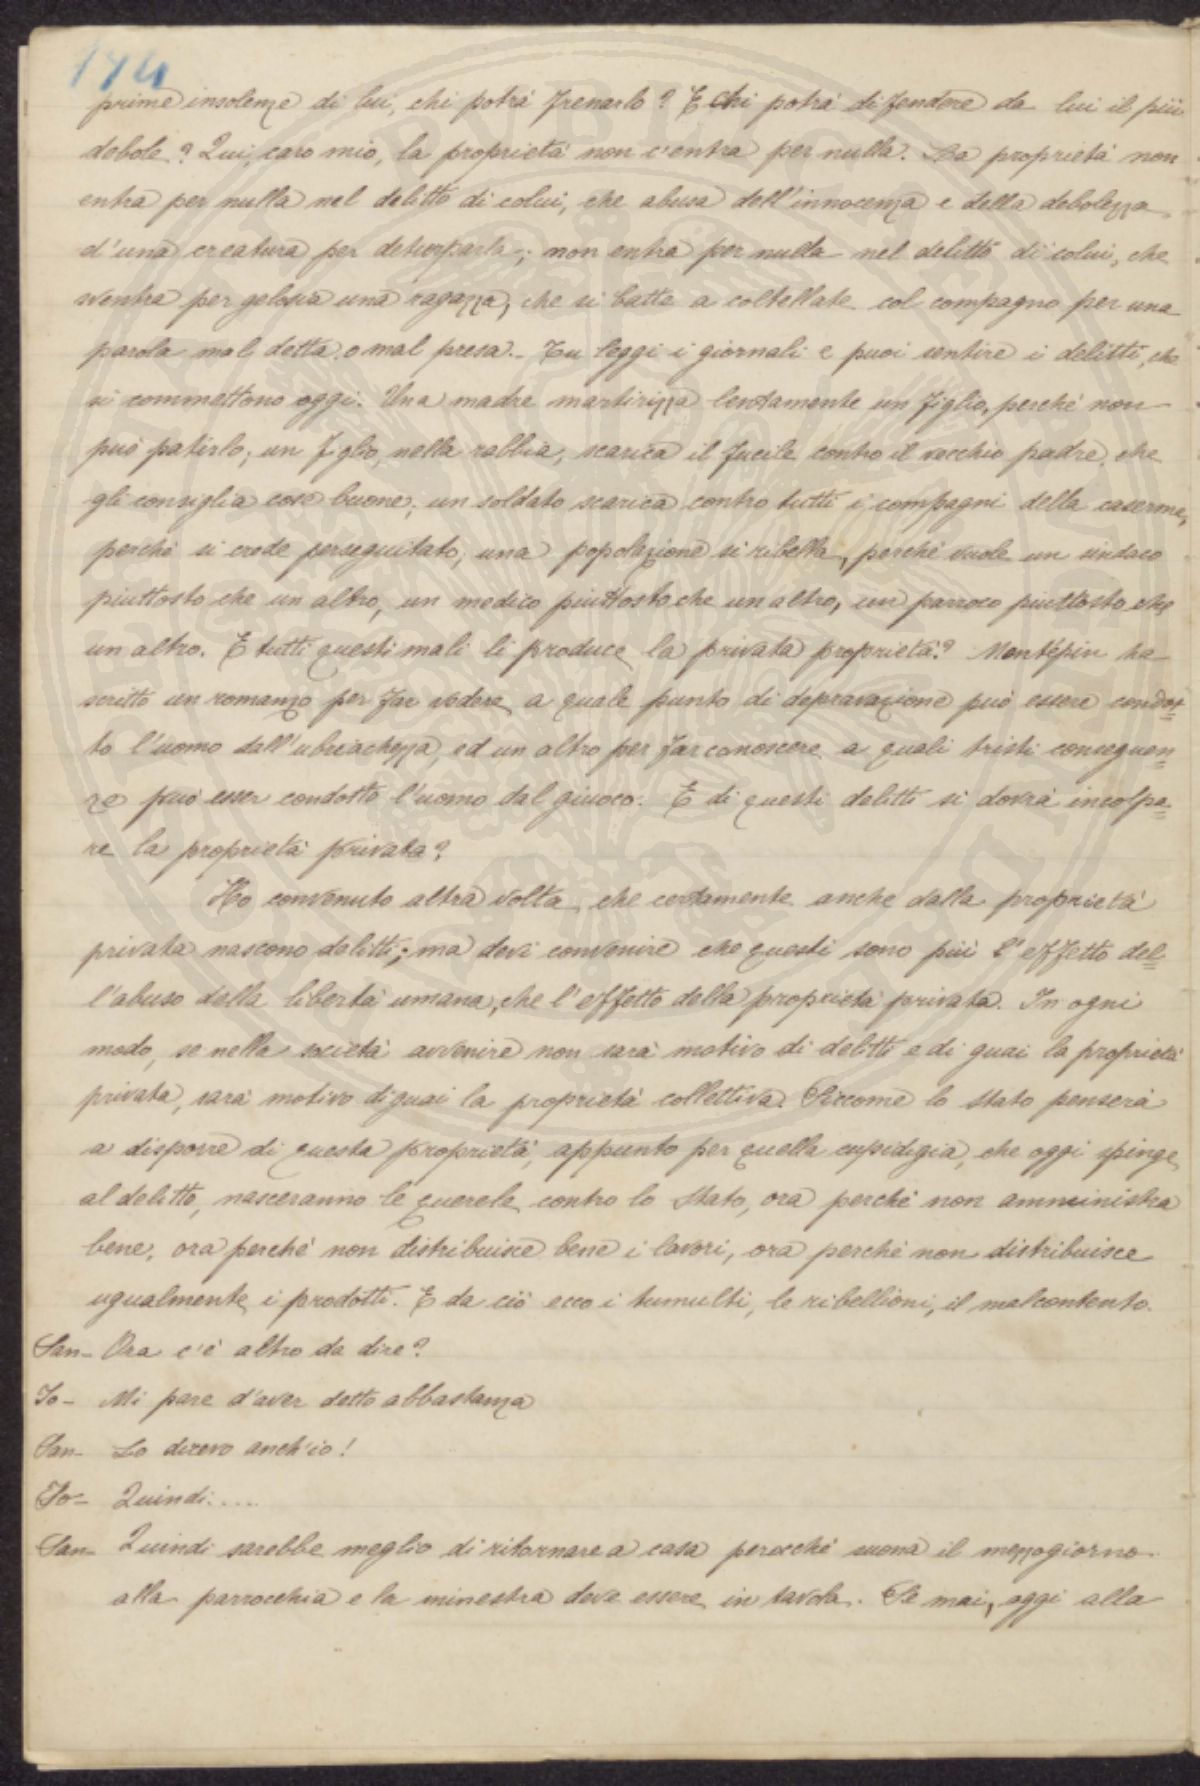 174
prime insolenze di lui, chi potrà frenarlo? E chi potrà difendere da lui il più
debole? Qui, caro mio, la proprietà non c'entra per nulla. La proprietà non
entra per nulla nel delitto di colui, che abusa dell'innocenza e della debolezza
d'una creatura per deturparla; non entra per nulla nel delitto di colui, che
sventra per gelosia una ragazza, che si batte a coltellate col compagno per una
parola mal detta o mal presa. Tu leggi i giornali e puoi sentire i delitti, che
si commettono oggi. Una madre martirizza lentamente un figlio, perchè non
può patirlo; un figlio, nella rabbia, scarica il fucile contro il vecchio padre, che
gli consiglia cose buone; un soldato scarica contro tutti i compagni della caserma,
perchè si crede perseguitato; una popolazione si ribella, perchè vuole un sindaco
piuttosto che un altro, un medico piuttosto che un altro, un parroco piuttosto che
un altro. E tutti questi mali li produce la privata proprietà? Montépin ha
scritto un romanzo per far vedere a quale punto di depravazione può essere condot=
to l'uomo dall'ubriachezza, ed un altro per far conoscere a quali tristi conseguen=
ze può esser condotto l'uomo dal giuoco. E di questi delitti si dovrà incolpa=
re la proprietà privata?
Ho convenuto altra volta che certamente anche dalla proprietà
privata nascono delitti; ma devi convenire che questi sono più l'effetto del=
l'abuso della libertà umana, che l'effetto della proprietà privata. In ogni
modo, se nella società avvenire non sarà motivo di delitti e di guai la proprietà
privata, sarà motivo di guai la proprietà collettiva. Siccome lo Stato penserà
a disporre di questa proprietà, appunto per quella cupidigia, che oggi spinge
al delitto, nasceranno le querele contro lo Stato, ora perchè non amministra
bene, ora perchè non distribuisce bene i lavori, ora perchè non distribuisce
ugualmente i prodotti. E da ciò ecco i tumulti, le ribellioni, il malcontento.
San- Ora c'è altro da dire?
Io- Mi pare d'aver detto abbastanza
San- Lo dicevo anch'io!
Io- Quindi.....
San- Quindi sarebbe meglio di ritornare a casa perocchè suona il mezzogiorno
alla parrocchia e la minestra deve essere in tavola. Se mai, oggi alla